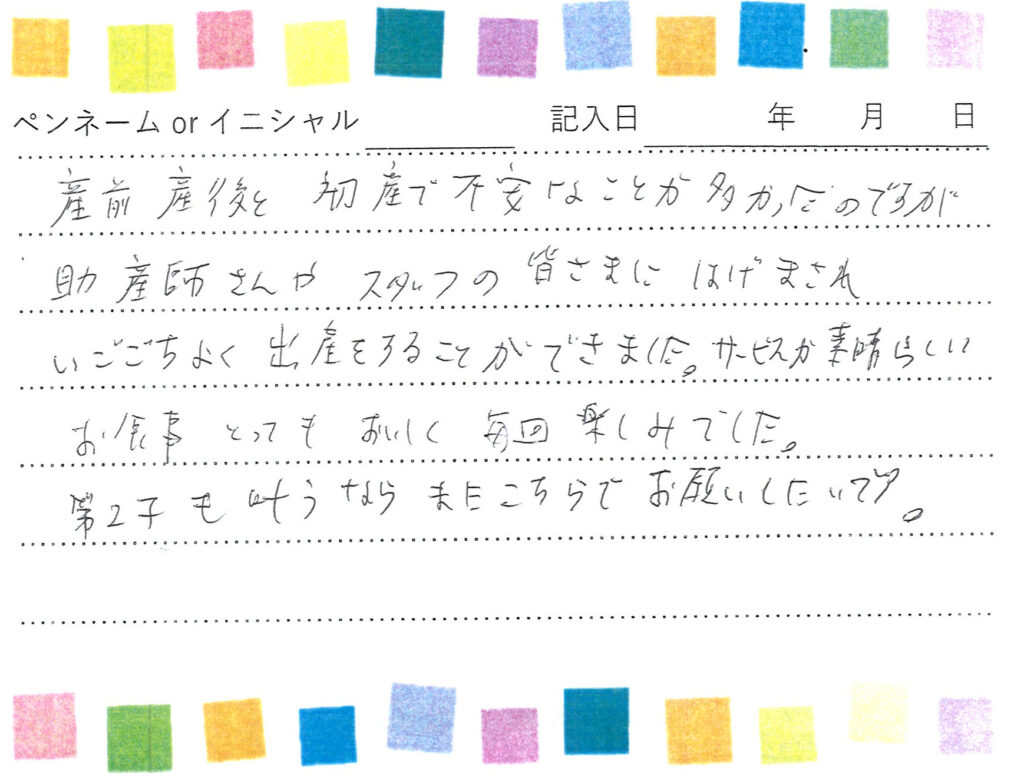 ペンネーム or イニシャル 記入日 年 月 日
産前産後と 初産で不安なことが多かったのですが
助産師さんや スタッフの皆さまに はげまされ
いごごちよく出産をすることができました。サービスが素晴らしい
お食事 とっても おいしく 毎回 楽しみでした。
第2子も叶うならまたこちらでお願いしたいです。